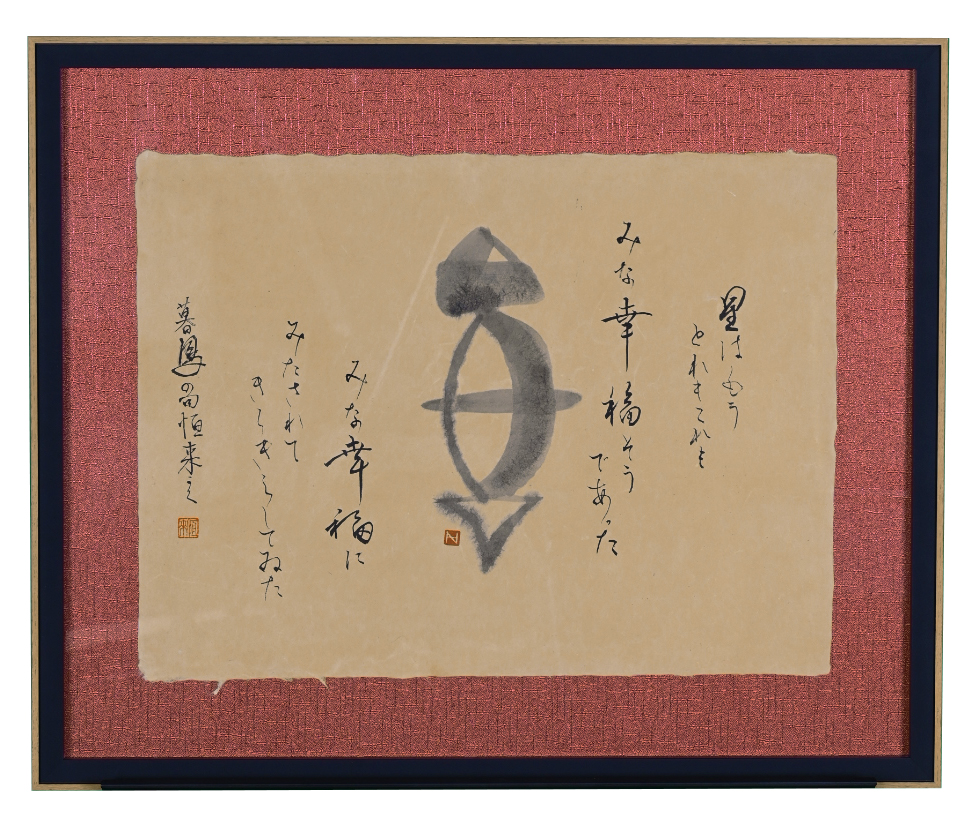 星はもう
どれもこれも
みな幸福そう
であった
みな幸福に
みたされて
きらきらしてゐた
暮鳥の句恒来之